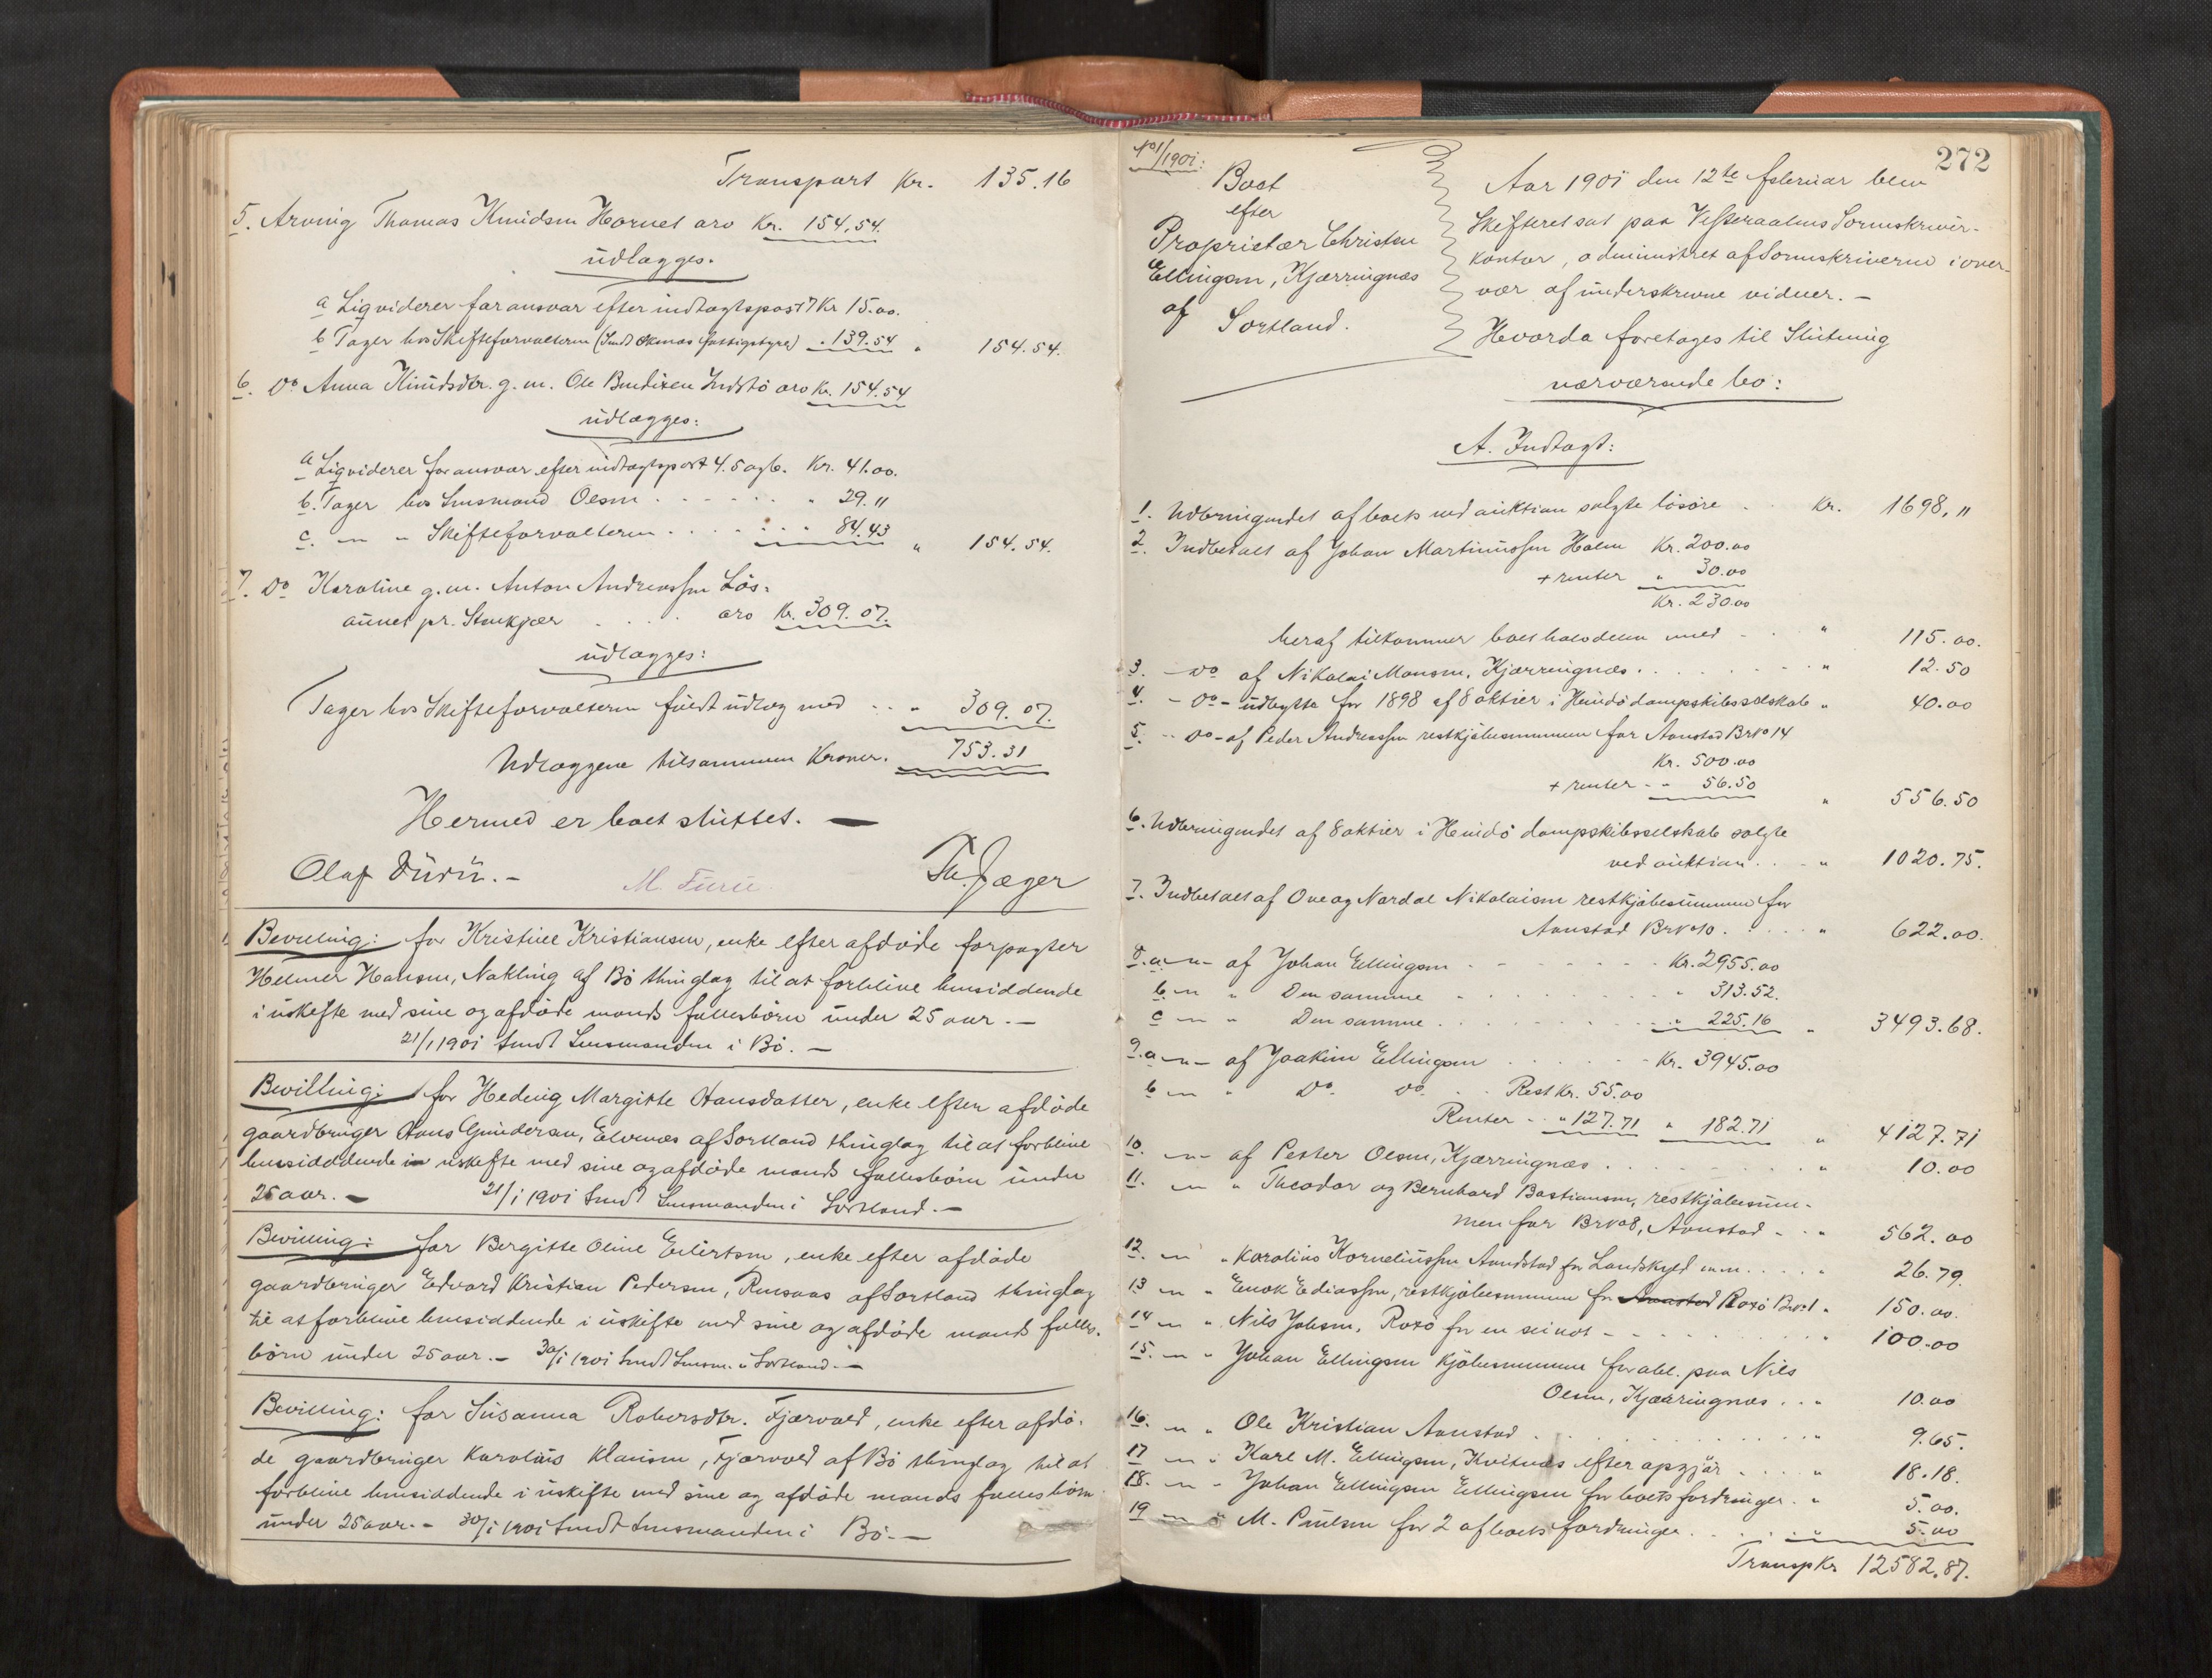 Transport Kr. 135.16
5. Arving Thomas Knudsen Hornes arv Kr. 154.54.
udlægges.
a Ligviderer for ansvar efter indtægtspost 7 Kr 15.00.
b Tager hos Skifteforvalteren (Sendt Øksnæs fattigstyre) " 139.54 " 154.54.
6. Do Anna Knudsdtr. g. m. Ole Bendixen arv Kr. 154.54
udlægges:
a Ligviderer for ansvar efter indtægtspost 4. 5 og 6. Kr. 41.00.
b. Tager hos Lensmand Olsen . . . " 29. "
c. — " Skifteforvalteren . . . " 84.43 " 154.54.
7. Do Karoline g. m. Anton Andreassen Lös=
aunet pr. Stenkjær . . . arv Kr. 309.07.
udlægges:
Tager hos Skifteforvalteren fuldt udlæg med . . " 309.07.
Udlæggene tilsammen Kroner. 753.31
Hermed er boet sluttet. —
Olaf Furu. — M Furu. Th. Jæger
Bevilling: for Kristine Kristiansen, enke efter afdöde forpagter
Helmer Hansen, Nakling af Bö thinglag til at forblive hensiddende
i uskifte med sine og afdöde mands fællesbörn under 25 aar. —
21/1 1901 sendt Lensmanden i Bö. —
Bevilling: for Hedvig Margitte Hansdatter, enke efter afdöde
gaardbruger Hans Gundersen, Elvenes af Sortland thinglag til at forblive
hensidddende i uskifte med sine og afdöde mands fællesbörn under
25 aar. — 21/1 1901 sendt Lensmanden i Sortland. —
Bevilling: for Bergitte Oline Eilertsen, enke efter afdöde
gaardbruger Edvard Kristian Pedersen, af Sortland thinglag
til at forblive hensiddende i uskifte med sine og afdöde mands fælles-
börn under 25 aar. — 30/1 1901 sendt Lensm. i Sortland. —
Bevilling: for Susanna Robersdtr. Fjærvold, enke efter afdö-
de gaardbruger Karolius Klausen, Fjærvold af Bö thinglag til at
forblive hensiddende i uskifte med sine og afdöde mands fællesbörn
under 25 aar. — 30/1 1901 sendt Lensmanden i Bö. —
272
No 1/1901:
Boet
efter
Proprietær Christen
Ellingsen, Kjærringnæs
af Sortland.
Aar 1901 den 12te februar blev
Skifteret sat paa Vesteraalens Sorenskriver-
kontor, administret af Sorenskriveren i over-
vær af underskrevne vidner. —
Hvorda foretages til Slutning
nærværende bo:
A. Indtægt:
1. Udbringendet af boets ved auktion solgte lösöre . . Kr. 1698, "
2. Indbetalt af Johan Martinussen Holm Kr. 200.00
+ renter " 30.00
Kr. 230.00
heraf tilkommer boet halvdelen med . . " 115.00.
3. — Do af Nikolai Monsen, Kjærringnæs . . . " 12.50
4. — Do — udbytte for 1898 af 8 aktier i Hindö dampskibsselskab " 40.00
5. — Do — af Peder Andreassen restkjöbesummen for Aanstad Br No 14
Kr. 500.00
+ renter - - 56.50 " 556.50
6. Udbringendet af 8 aktier i Hindö dampskibsselskab solgte
ved auktion . . " 1020.75.
7. Indbetalt af Ove og Nordal Nikolaisen restkjöbesummen for
Aanstad Br No 10. . . . " 622.00.
8. a — af Johan Ellingsen . . . Kr. 2955.00
b — " Den samme . . . " 313.52.
c — " Den samme . . . " 225.16 " 3493.68.
9. a — af Joakim Ellingsen . . . Kr. 3945.00
b — " Do Do . Rest Kr. 55.00
Renter . . " 127.71 " 182.71 " 4127.71
10. — af Petter Olsen, Kjærringnæs . . . " 10.00
11. — " Theodor og Bernhard Bastiansen, restkjöbesum-
men for Br No 8, Aanstad . . " 562.00
12. — " Karolius Korneliussen Aandstad for Landskyld m.m. . . . " 26.79.
13 — " Enok Ediassen, restkjöbesummen for Aanstad Roxö Br No 1 " 150.00.
14 — " Nils Johsen, Roxö for en seinot . . . " 100.00
15. — " Johan Ellingsen kjöbesummen for obl. paa Nils
Olsen, Kjærringnæs . . " 10.00
16. — " Ole Kristian Aanstad . . . " 9.65.
17 — " Karl M. Ellingsen, Kvitnæs efter opgjör . . . " 18.18.
18. — " Johan Ellingsen Ellingsen for boets fordringer . " 5.00.
19 — " M. Paulsen for 2 af boets fordringer . . . " 5.00
Transp Kr 12582.87.